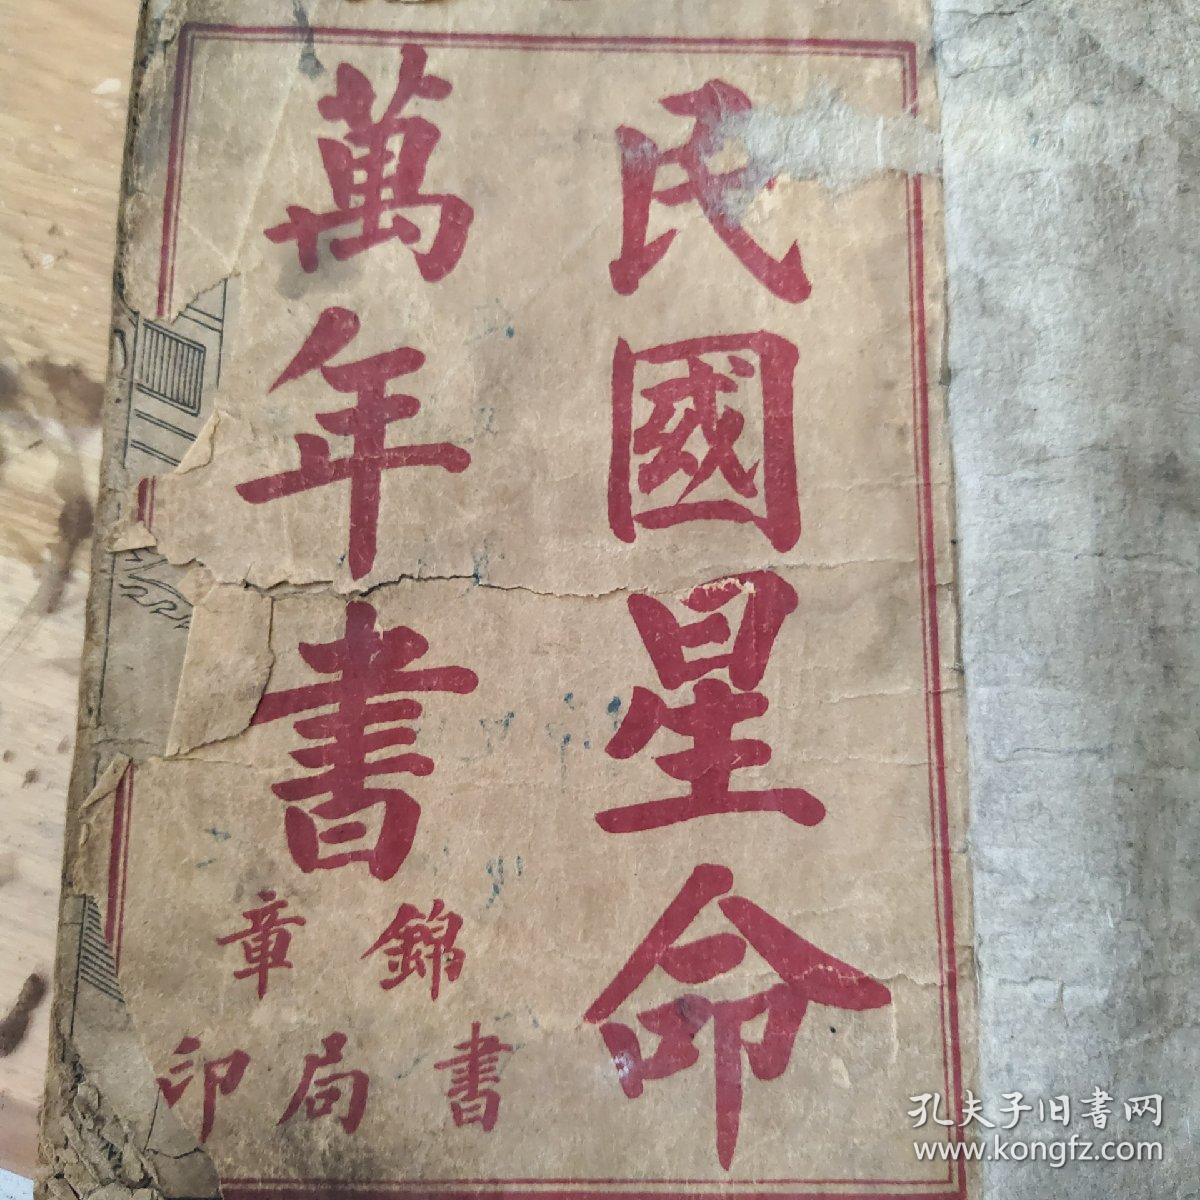 民國星命
萬年書
錦章
書局印
孔夫子旧書网
www.kongfz.com